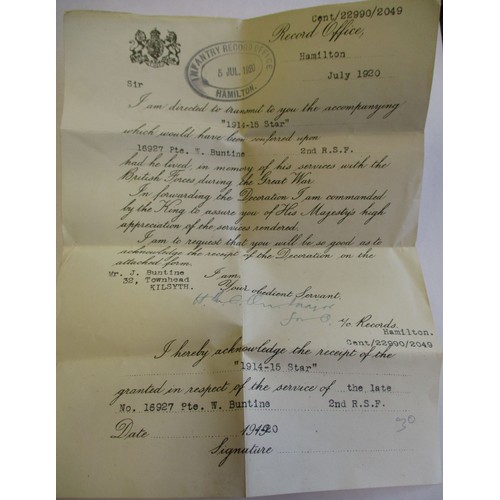 Cent/22990/2049
Record Office,
Hamilton
INFANTRY RECORD OFFICE
5 JUL 1920
HAMILTON.
July 1920
Sir
I am directed to transmit to you the accompanying
"1914-15 Star"
which would have been conferred upon
16927 Pte. W. Buntine 2nd R.S.F.
had he lived, in memory of his services with the
British Forces, during the Great War
In forwarding the Decoration I am commanded
by the King to assure you of His Majesty's high
appreciation of the services rendered.
I am to request that you will be so good as to
acknowledge the receipt of the Decoration on the
attached form.
I am,
Mr. J. Buntine
32, Townhead
KILSYTH.
Your obedient Servant,
for O. i/c Records.
Hamilton.
Cent/22990/2049
I hereby acknowledge the receipt of the
"1914-15 Star"
granted in respect of the service of the late
No. 16927 Pte. W. Buntine 2nd R.S.F.
Date 1920
Signature